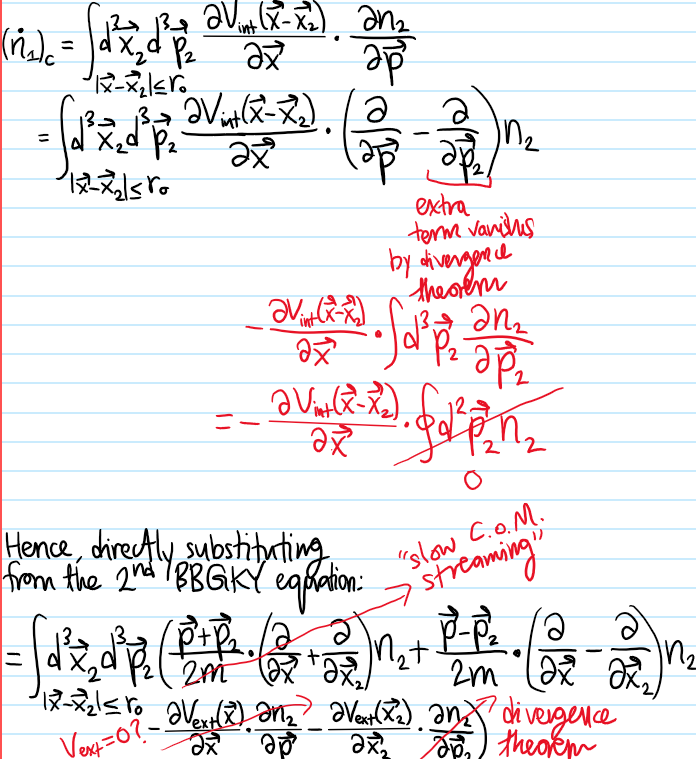 (ṅ₁)_c = ∫_{|x⃗-x⃗₂|≤r₀} d³x⃗₂ d³p⃗₂ ∂V_int(x⃗-x⃗₂)/∂x⃗ · ∂n₂/∂p⃗
= ∫_{|x⃗-x⃗₂|≤r₀} d³x⃗₂ d³p⃗₂ ∂V_int(x⃗-x⃗₂)/∂x⃗ · (∂/∂p⃗ - ∂/∂p⃗₂) n₂
extra
term vanishes
by divergence
theorem
- ∂V_int(x⃗-x⃗₂)/∂x⃗ · ∫d³p⃗₂ ∂n₂/∂p⃗₂
= - ∂V_int(x⃗-x⃗₂)/∂x⃗ · ∮d²p⃗₂ n₂
0
Hence, directly substituting
from the 2nd BBGKY equation:
"slow C.o.M.
streaming"
= ∫_{|x⃗-x⃗₂|≤r₀} d³x⃗₂ d³p⃗₂ ( (p⃗+p⃗₂)/2m · (∂/∂x⃗ + ∂/∂x⃗₂) n₂ + (p⃗-p⃗₂)/2m · (∂/∂x⃗ - ∂/∂x⃗₂) n₂
V_ext=0? - ∂V_ext(x⃗)/∂x⃗ · ∂n₂/∂p⃗ - ∂V_ext(x⃗₂)/∂x⃗₂ · ∂n₂/∂p⃗₂ ) divergence
theorem